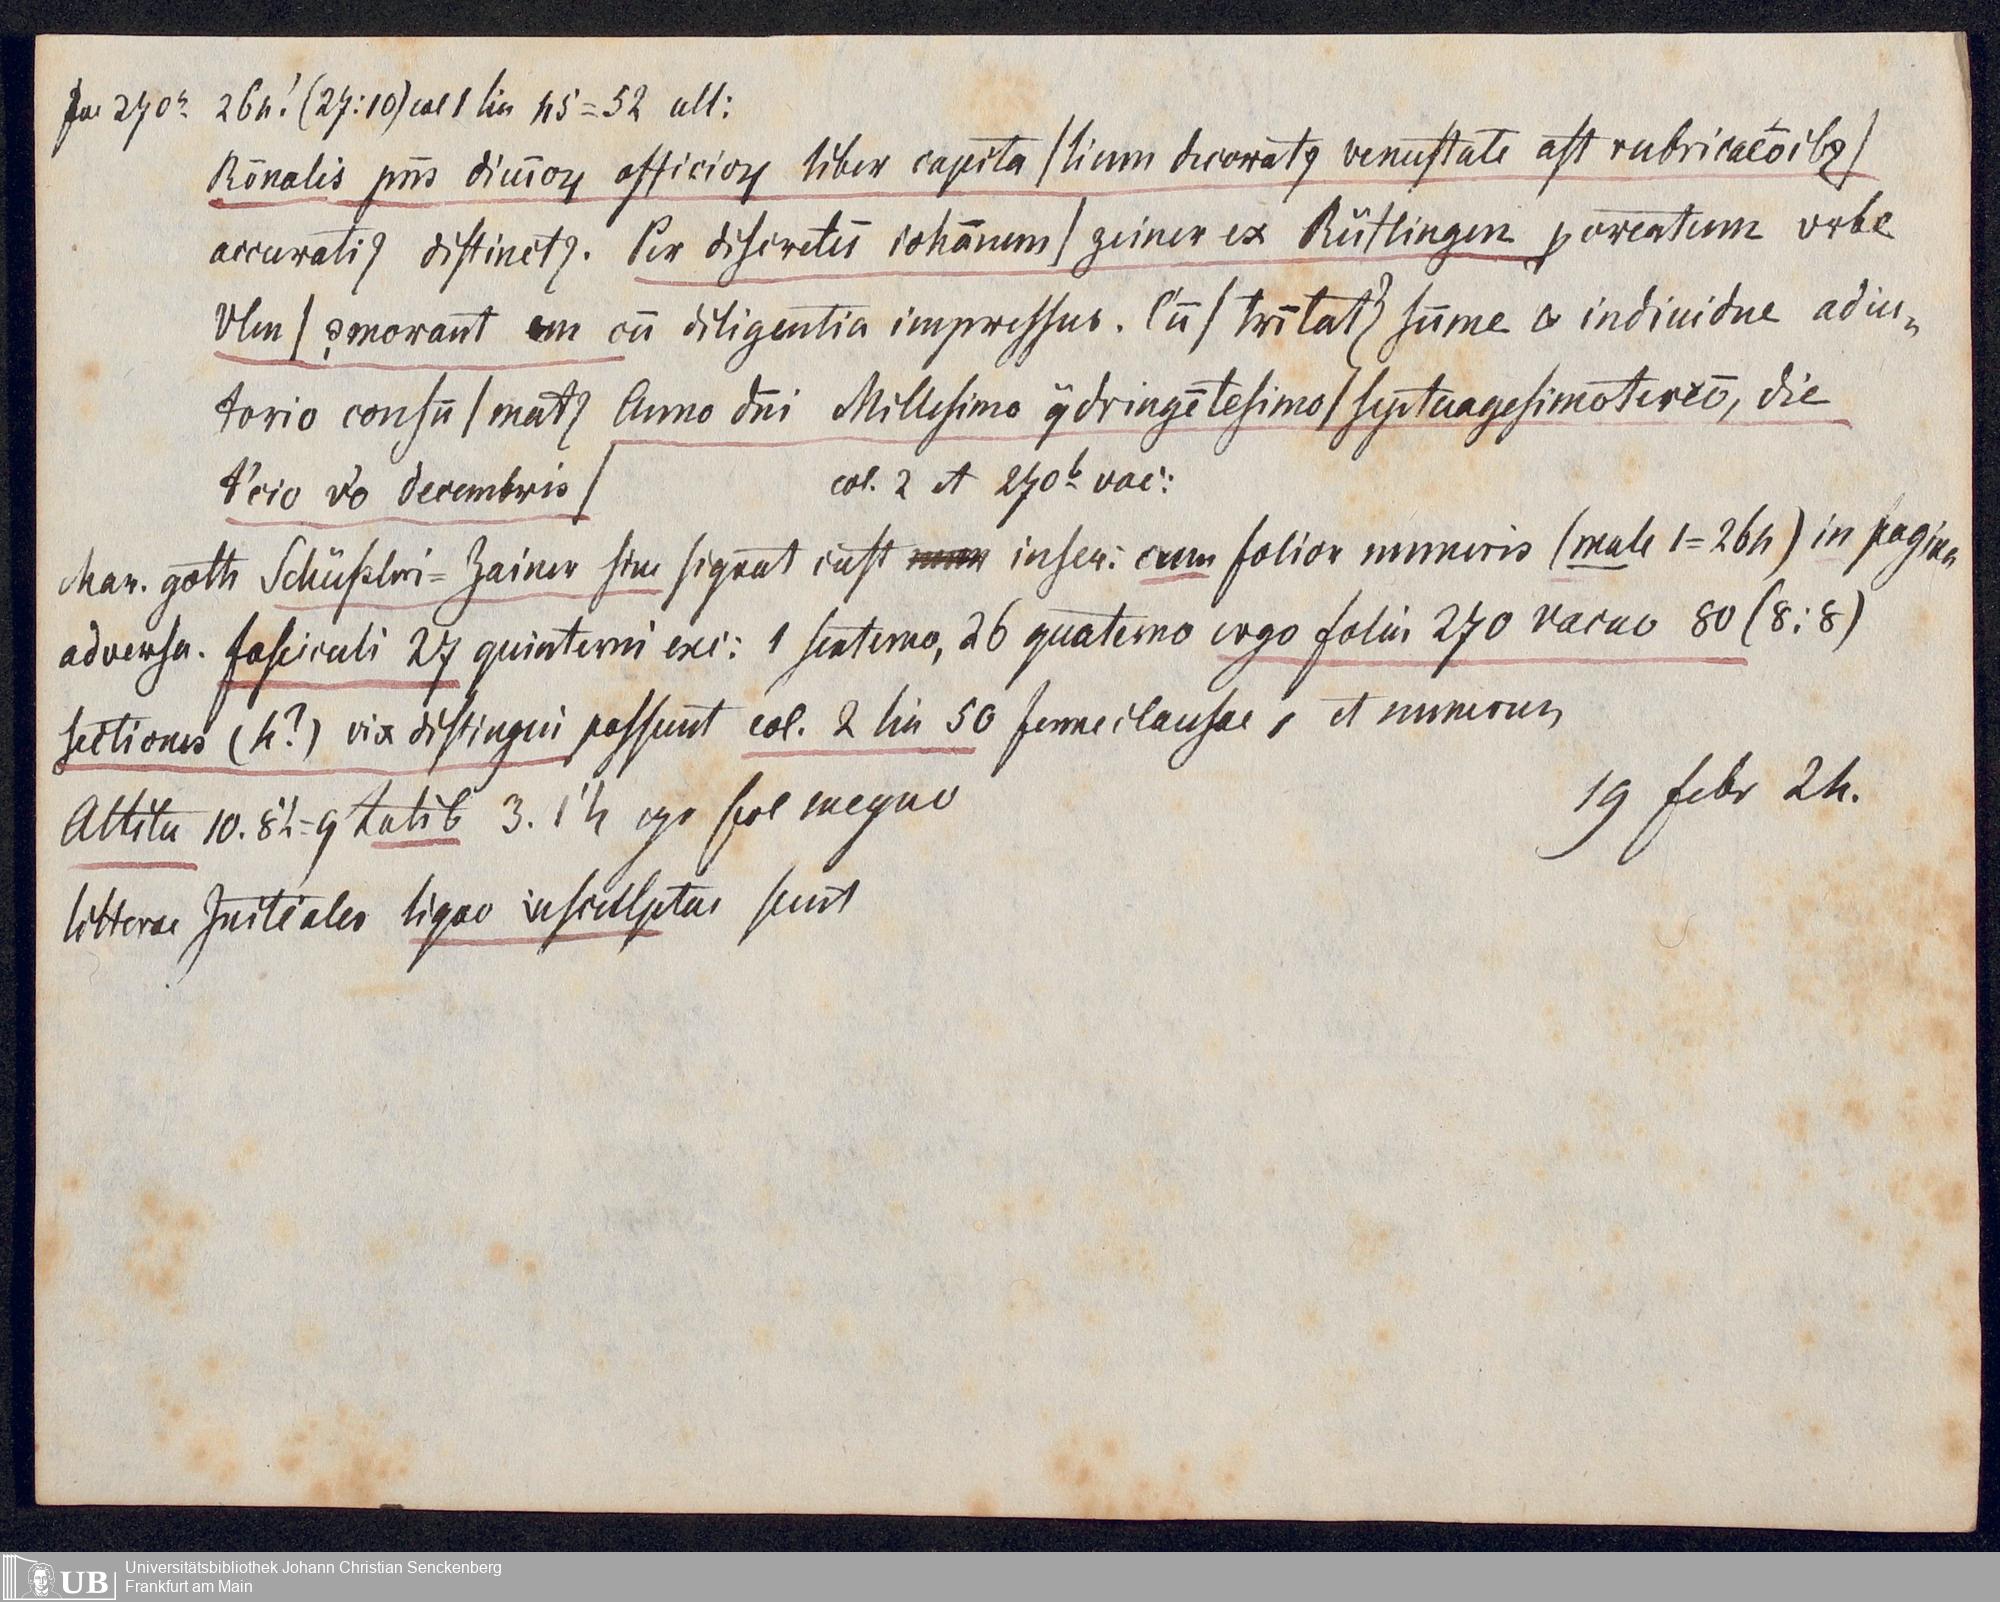 270ª 264! (27:10) col 1 lin 45=52 ult:
Rōnalis pn̄s diuı̄oꝝ officioꝝ liber capita / lium decorat₉ venustate ast rubricacōibꝫ /
accurati₉ distinct₉. Per discretū iohānem / zeiner ex Rütlingen ꝓcreatum vrbe
Vlm / ꝯmorant em cū diligentia impressus. Cū / tri̅tat₉ sūme & indiuidue adiu„
torio consū / mat₉ Anno dn̄i Millesimo q̈dringētesimo / septuagesimotercō, die
t'cio v̊o decembris / col. 2 et 270ᵇ vac:
char. goth Schüßleri=Zainer sine signat cust inscr: cum folior numeris (male 1=264) in pagina
adversa. fasciculi 27 quinterni exc: 1 septerno, 26 quaterno ergo foliis 270 vacuo 80 (8:8)
sectiones (4?) vix distingui possunt col. 2 lin 50 ferme clausae, et numerus
Altitu 10. 8'''=9 Latit 3. 1'''4 ergo fol magno 19 febr 24.
litterae Initiales ligno insculptae sunt
UB Universitätsbibliothek Johann Christian Senckenberg
Frankfurt am Main